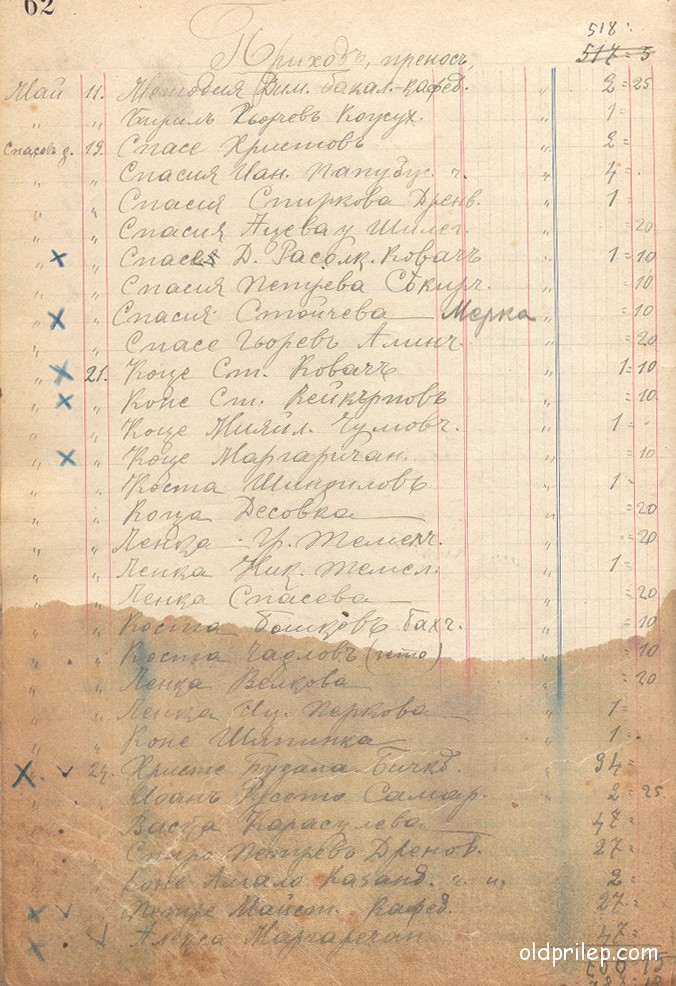 62
518:
517=5
Приходъ, преносъ,
Май 11. Методия Дим. бакал.-кафед. " 2=25
" " Кирилъ Кьорчевъ Кожух. " 1=
Спасовъ д. 19. Спасе Христовъ " 2=
" " Спасия Иан. Папубус. ч. " 4=.
" " Спасия Спиркова Дренв. " 1=
" " Спасия Ацева у Шилег. " =20
" " Спасе Д. Расолк. Ковачъ " 1=10
" " Спасия Петрева Сѣкир. " =10
" " Спасия Стойчева Мерка " =10
" " Спасе Гьоревъ Алинч. " =20
" 21. Коце Ст. Ковачъ " 1=10
" " Коне Ст. " =10
" " Коце Михйл. Чумовъ. " 1=
" " Коце Маргаричан. " =10
" " Коста Шиндиловъ " 1=
" " Коца Десовка " =20
" " Ленка =20
" " Ленка Ник. " 1=
" " Ленка Спасева " =20
" " Коста Бошковъ Бахч. " =10
" Коста Чадловъ (ито) " =10
" Ленка Велкова " =20
" " Ленка Перкова " 1=
" " Коне Шяпинка " 1=.
24. Христе Бузала 94=
Иоанъ Русето Самар. " 2=25
" Васка Карасулева 47=
" Спиро Петревъ Дренов. 27=
Коне Амзало Казанд. ч. и, 2=
" Петре Майст. Кафед. 27=
Алекса Маргаречан 47=
oldprilep.com